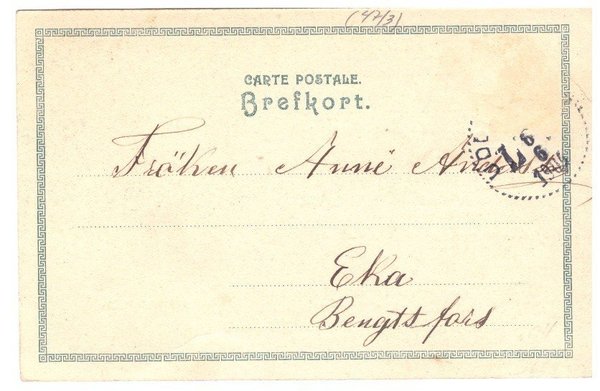 (47/3)
CARTE POSTALE.
Brefkort.
Fröken Anné
Eka
Bengtsfors